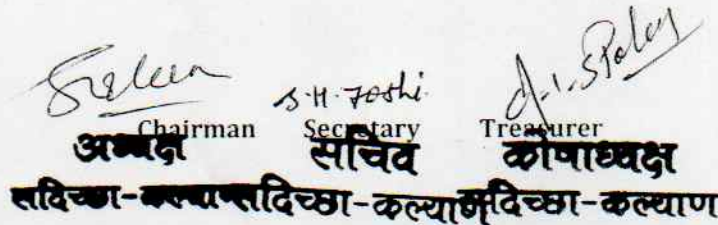 S. H. Joshi.
Chairman Secretary Treasurer
अध्यक्ष सचिव कोषाध्यक्ष
सदिच्छा-कल्याण सदिच्छा-कल्याण सदिच्छा-कल्याण